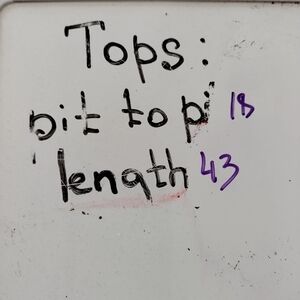 Tops:
pit to pi 18
length 43